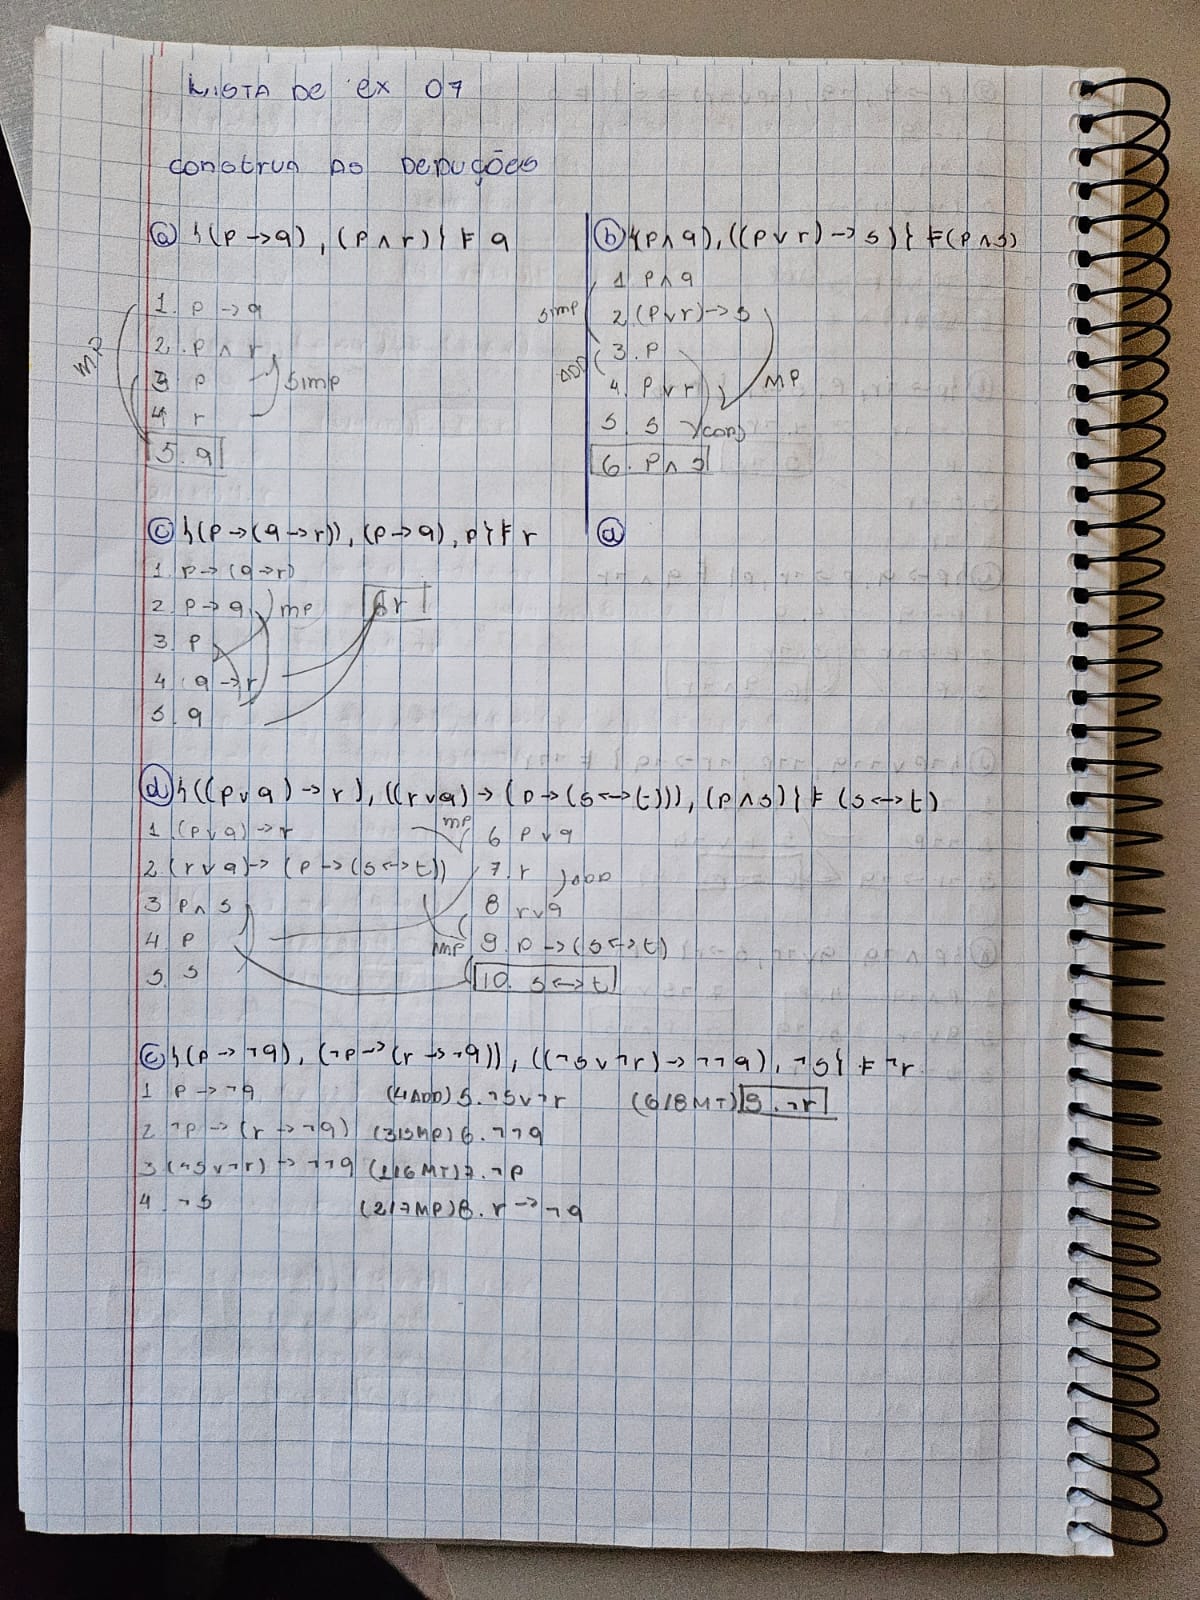 LISTA DE EX 07
CONSTRUA AS DEDUÇÕES
ⓐ {(P → q), (P ∧ r)} ⊨ q
1. P → q
2. P ∧ r
3 P
4 r
5. q
MP
SIMP
ⓑ {(P ∧ q), ((P ∨ r) → s)} ⊨ (P ∧ s)
1 P ∧ q
2 (P ∨ r) → s
3. P
4. P ∨ r
5. s
6. P ∧ s
SIMP
ADD
MP
conj
ⓒ {(P → (q → r)), (P → q), P} ⊨ r
1. P → (q → r)
2. P → q
3 P
4 (q → r
5. q
MP
6 r
ⓓ
ⓓ {((P ∨ q) → r), ((r ∨ q) → (P → (s ↔ t))), (P ∧ s)} ⊨ (s ↔ t)
1 (P ∨ q) → r
2 (r ∨ q) → (P → (s ↔ t))
3 P ∧ s
4 P
5. s
MP
6 P ∨ q
7. r
ADD
8 r ∨ q
MP
9. P → (s ↔ t)
10. s ↔ t
ⓔ {(P → ¬q), (¬P → (r → ¬q)), ((¬s ∨ ¬r) → ¬¬q), ¬s} ⊨ ¬r
1 P → ¬q
2 ¬P → (r → ¬q)
3 (¬s ∨ ¬r) → ¬¬q
4 ¬s
(4 ADD) 5. ¬s ∨ ¬r
(3/5 MP) 6. ¬¬q
(1/6 MT) 7. ¬P
(2/7 MP) 8. r → ¬q
(6/8 MT) 9. ¬r